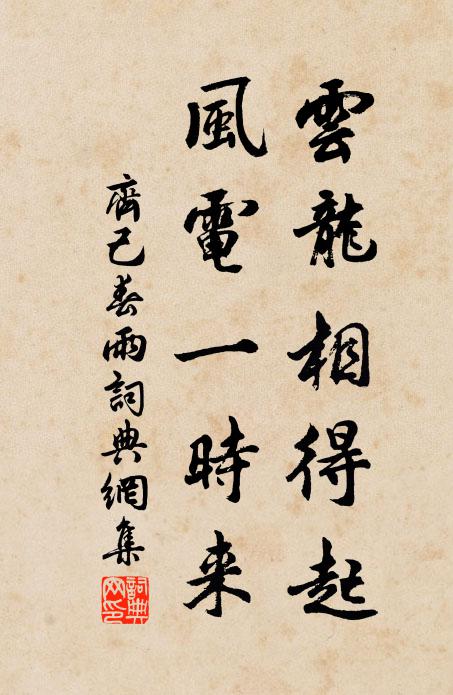 雲龍相得起
風電一時来
齊己春雨詞典網集
詞典
网印